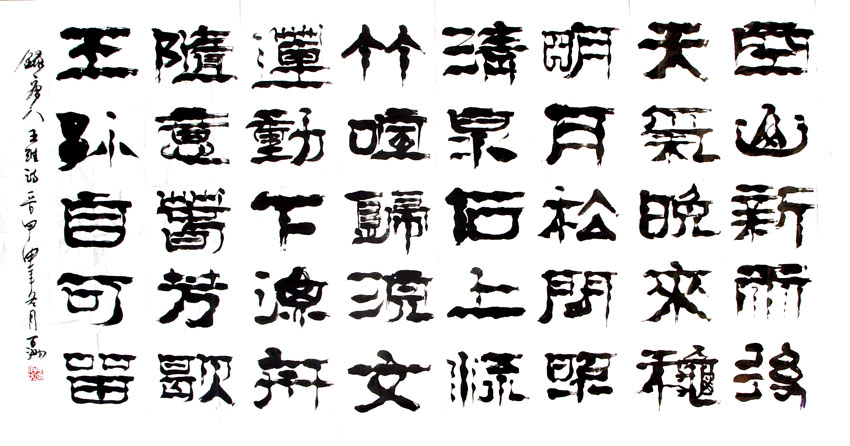 空山新雨後
天氣晚來穐
明月松間照
清泉石上流
竹喧歸浣女
蓮動下漁舟
隨意春芳歇
王孙自可留
錄唐人王維詩一首甲申年冬月